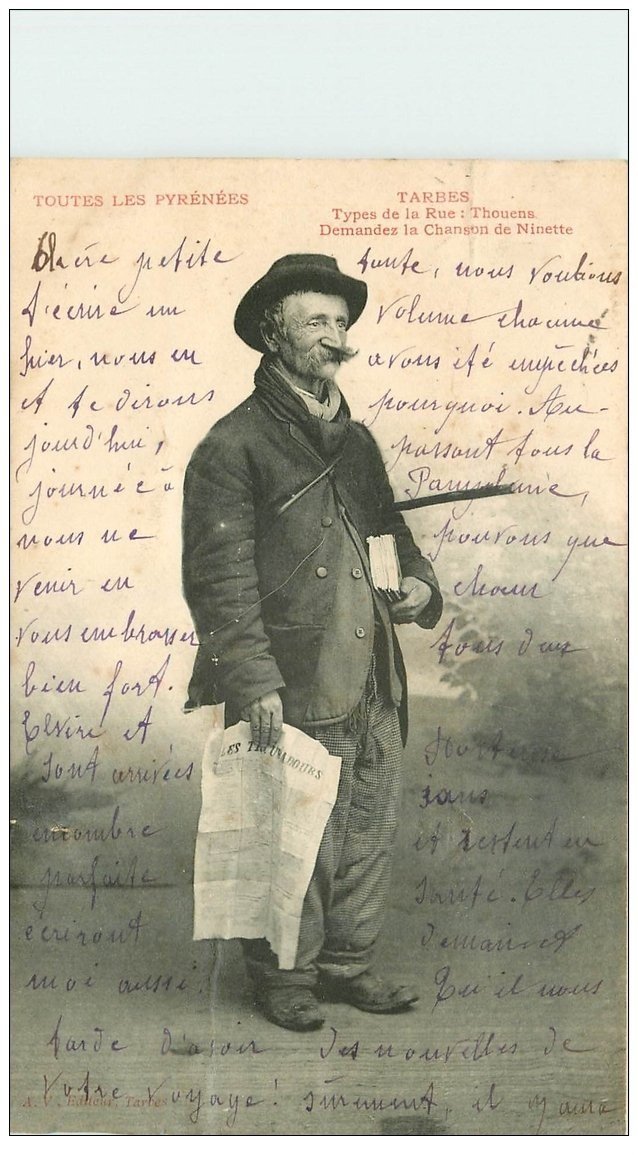 TOUTES LES PYRÉNÉES
TARBES
Types de la Rue : Thouens
Demandez la Chanson de Ninette
petite tante, nous voulions
t'écrire un volume chacune
hier, nous en avons été empêchées
et te dirons pourquoi. Au-
jourd'hui, passant tous la
journée à
nous ne pouvons que
venir en chœur
vous embrasser tous deux
bien fort.
Elvire et Hortense
sont arrivées sans
encombre et restent en
parfaite santé. Elles
écriront demain et
moi aussi. Qu'il nous
tarde d'avoir des nouvelles de
votre voyage! sûrement, il y aura
A. V. Editeur, Tarbes
LES TROUBADOURS